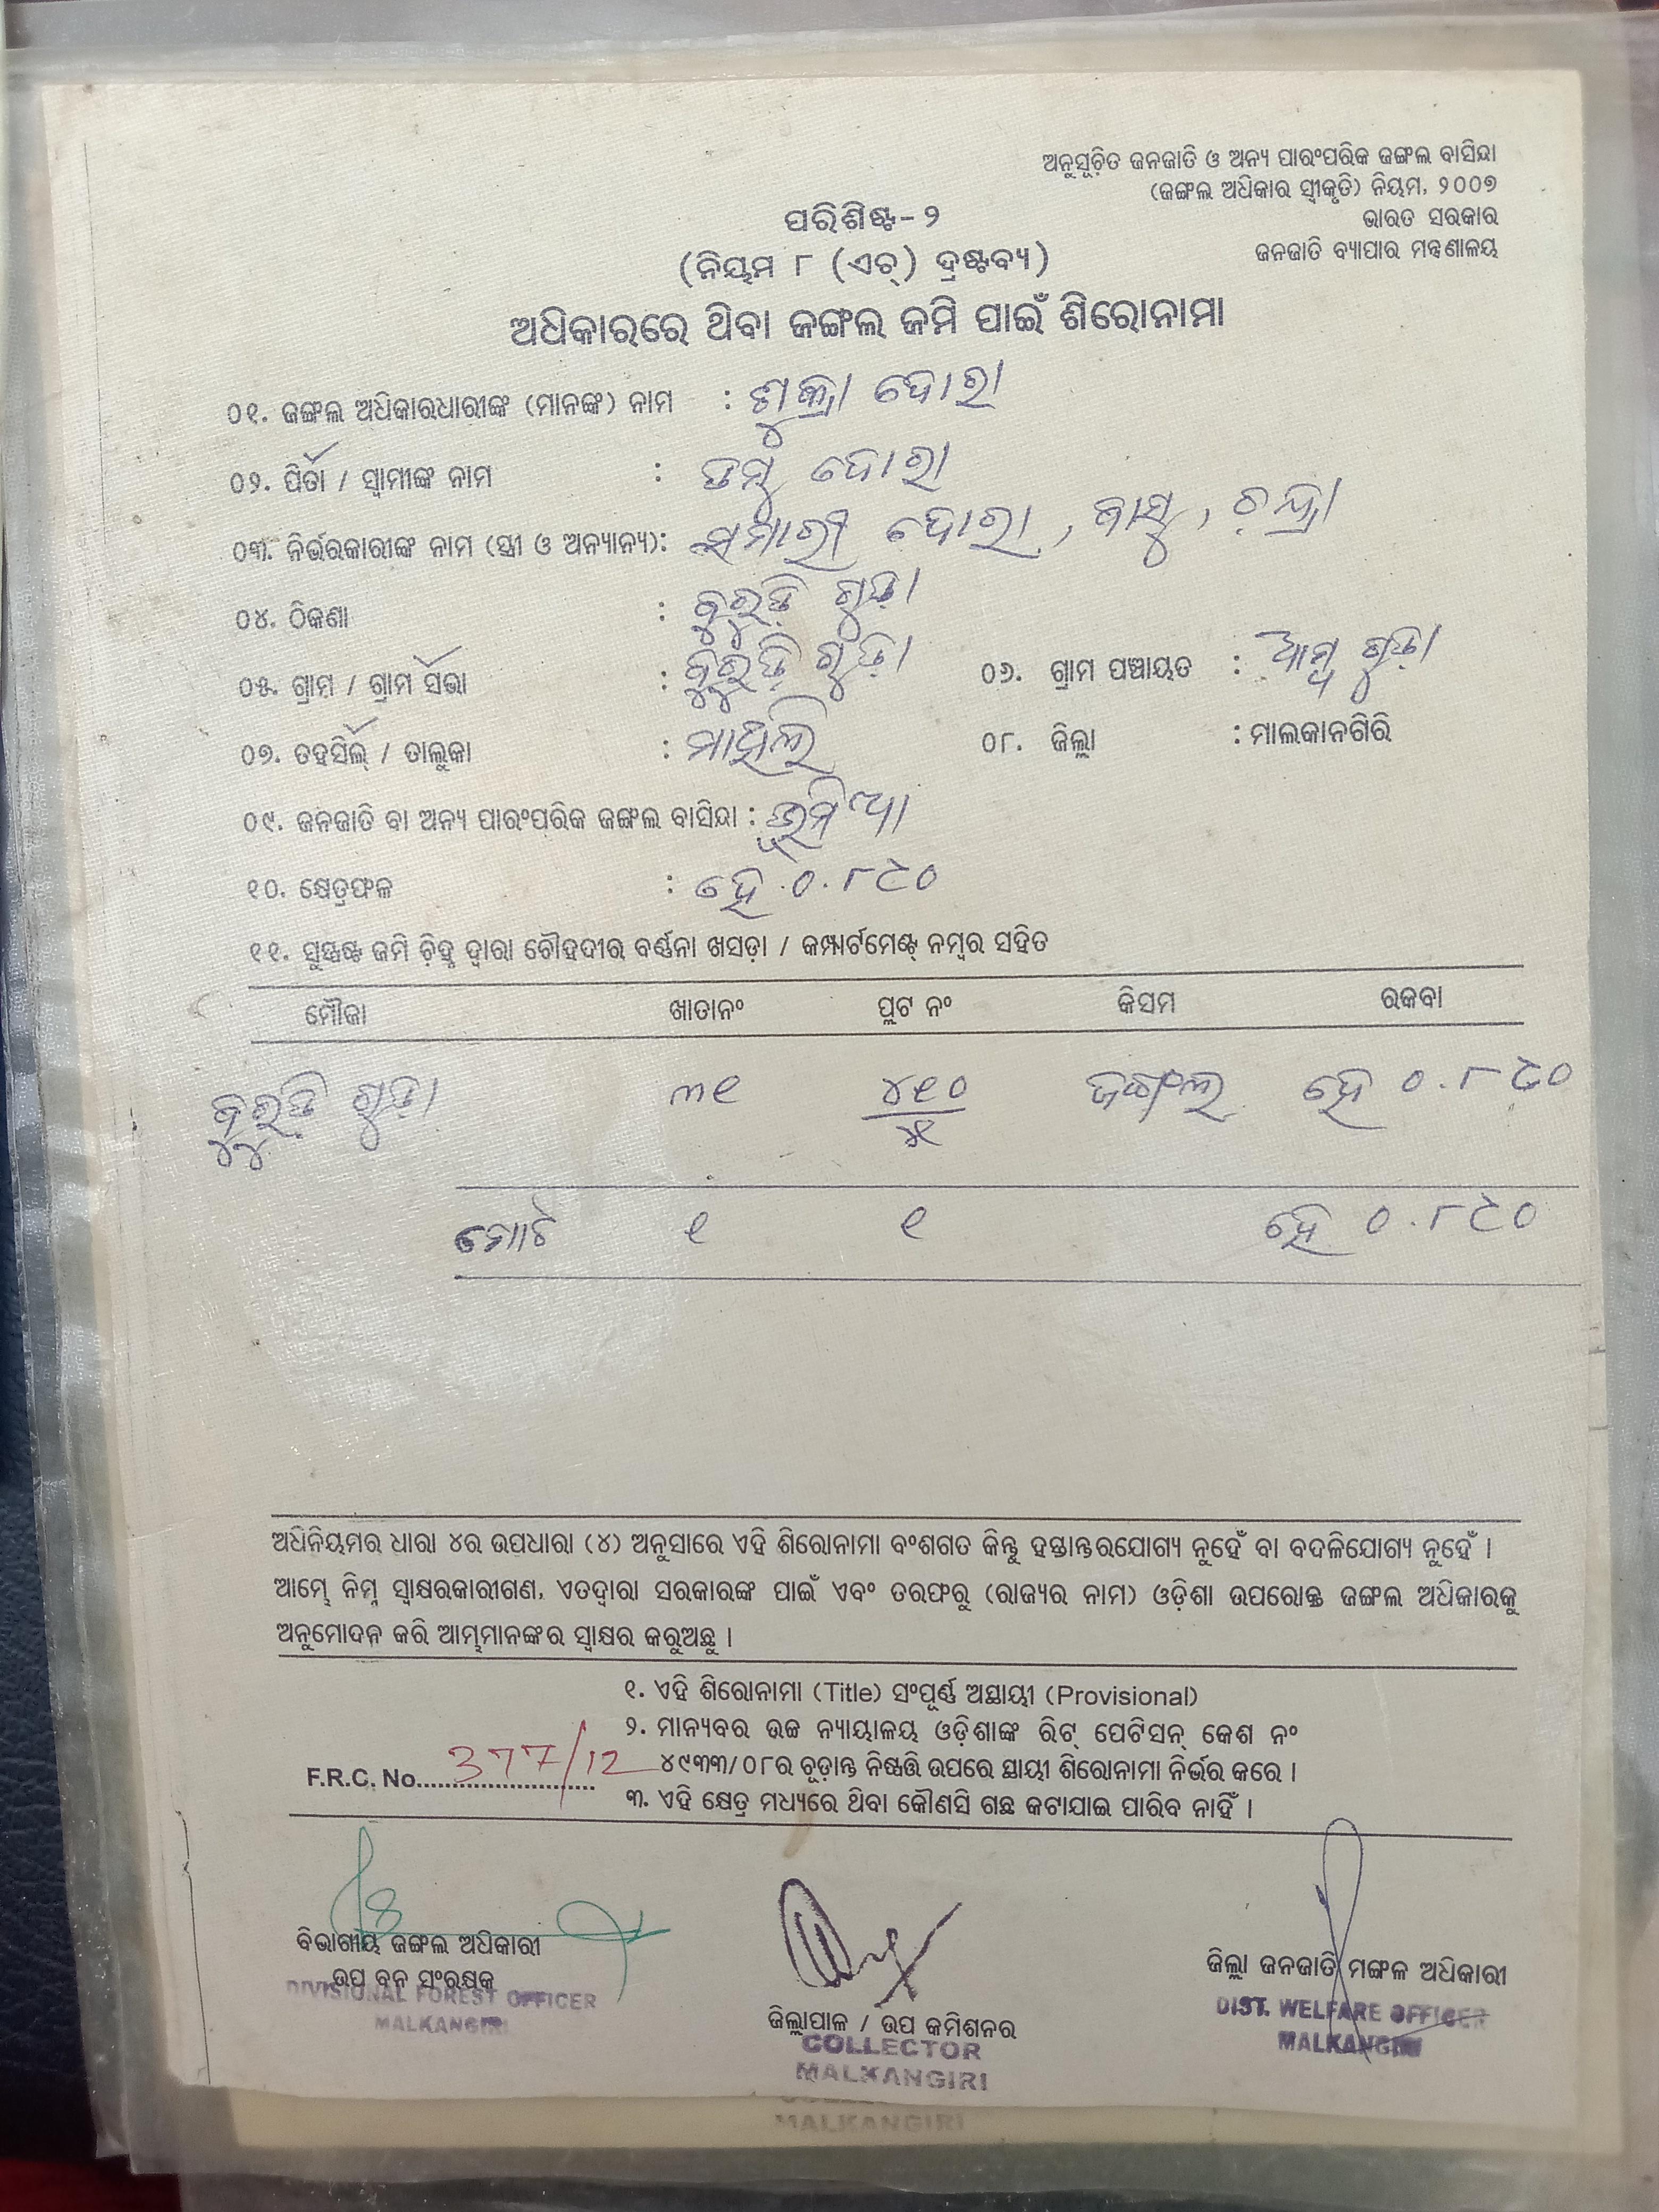 ଅନୁସୂଚିତ ଜନଜାତି ଓ ଅନ୍ୟ ପାରଂପରିକ ଜଙ୍ଗଲ ବାସିନ୍ଦା
(ଜଙ୍ଗଲ ଅଧିକାର ସ୍ୱୀକୃତି) ନିୟମ, ୨୦୦୭
ଭାରତ ସରକାର
ଜନଜାତି ବ୍ୟାପାର ମନ୍ତ୍ରଣାଳୟ
ପରିଶିଷ୍ଟ-୨
(ନିୟମ ୮ (ଏଚ୍) ଦ୍ରଷ୍ଟବ୍ୟ)
ଅଧିକାରରେ ଥିବା ଜଙ୍ଗଲ ଜମି ପାଇଁ ଶିରୋନାମା
୦୧. ଜଙ୍ଗଲ ଅଧିକାରଧାରୀଙ୍କ (ମାନଙ୍କ) ନାମ : ଶୁକ୍ରା ଦୋରା
୦୨. ପିତା / ସ୍ୱାମୀଙ୍କ ନାମ : ଡମ୍ବୁ ଦୋରା
୦୩. ନିର୍ଭରକାରୀଙ୍କ ନାମ (ସ୍ତ୍ରୀ ଓ ଅନ୍ୟାନ୍ୟ): ସମାରୀ ଦୋରା, ବାସୁ, ଚନ୍ଦ୍ରା
୦୪. ଠିକଣା : ବୁରୁଡ଼ି ଗୁଡ଼ା
୦୫. ଗ୍ରାମ / ଗ୍ରାମ ସଭା : ବୁରୁଡ଼ି ଗୁଡ଼ା ୦୬. ଗ୍ରାମ ପଞ୍ଚାୟତ : ଆମ୍ବ ଗୁଡ଼ା
୦୭. ତହସିଲ୍ / ତାଲୁକା : ମାଥିଲି ୦୮. ଜିଲ୍ଲା : ମାଲକାନଗିରି
୦୯. ଜନଜାତି ବା ଅନ୍ୟ ପାରଂପରିକ ଜଙ୍ଗଲ ବାସିନ୍ଦା : ଭୂମିଆ
୧୦. କ୍ଷେତ୍ରଫଳ : ହେ ୦.୮୯୦
୧୧. ସୁସ୍ପଷ୍ଟ ଜମି ଚିହ୍ନ ଦ୍ୱାରା ଚୌହଦୀର ବର୍ଣ୍ଣନା ଖସଡ଼ା / କମ୍ପାର୍ଟମେଣ୍ଟ୍ ନମ୍ବର ସହିତ
ମୌଜା ଖାତାନଂ ପ୍ଲଟ ନଂ କିସମ ରକବା
ବୁରୁଡ଼ି ଗୁଡ଼ା ୩୧ ୪୧୦ ଜଙ୍ଗଲ ହେ ୦.୮୯୦
ମୋଟ ୧ ୧ ହେ ୦.୮୯୦
ଅଧିନିୟମର ଧାରା ୪ର ଉପଧାରା (୪) ଅନୁସାରେ ଏହି ଶିରୋନାମା ବଂଶଗତ କିନ୍ତୁ ହସ୍ତାନ୍ତରଯୋଗ୍ୟ ନୁହେଁ ବା ବଦଳିଯୋଗ୍ୟ ନୁହେଁ ।
ଆମ୍ଭେ ନିମ୍ନ ସ୍ୱାକ୍ଷରକାରୀଗଣ, ଏତଦ୍ୱାରା ସରକାରଙ୍କ ପାଇଁ ଏବଂ ତରଫରୁ (ରାଜ୍ୟର ନାମ) ଓଡ଼ିଶା ଉପରୋକ୍ତ ଜଙ୍ଗଲ ଅଧିକାରକୁ
ଅନୁମୋଦନ କରି ଆମ୍ଭମାନଙ୍କର ସ୍ୱାକ୍ଷର କରୁଅଛୁ ।
୧. ଏହି ଶିରୋନାମା (Title) ସଂପୂର୍ଣ୍ଣ ଅସ୍ଥାୟୀ (Provisional)
୨. ମାନ୍ୟବର ଉଚ୍ଚ ନ୍ୟାୟାଳୟ ଓଡ଼ିଶାଙ୍କ ରିଟ୍ ପେଟିସନ୍ କେଶ ନଂ
୪୯୩୩/୦୮ର ଚୂଡ଼ାନ୍ତ ନିଷ୍ପତ୍ତି ଉପରେ ସ୍ଥାୟୀ ଶିରୋନାମା ନିର୍ଭର କରେ ।
F.R.C. No. 377/12
୩. ଏହି କ୍ଷେତ୍ର ମଧ୍ୟରେ ଥିବା କୌଣସି ଗଛ କଟାଯାଇ ପାରିବ ନାହିଁ ।
ବିଭାଗୀୟ ଜଙ୍ଗଲ ଅଧିକାରୀ
ଉପ ବନ ସଂରକ୍ଷକ
DIVISIONAL FOREST OFFICER
MALKANGIRI
ଜିଲ୍ଲାପାଳ / ଉପ କମିଶନର
COLLECTOR
MALKANGIRI
ଜିଲ୍ଲା ଜନଜାତି ମଙ୍ଗଳ ଅଧିକାରୀ
DIST. WELFARE OFFICER
MALKANGIRI
MALKANGIRI